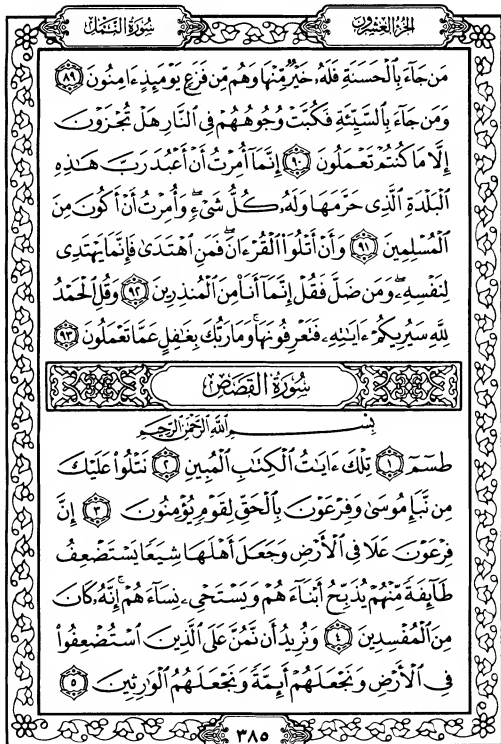 الجزء العشرون
سورة النمل
مَن جَآءَ بِالْحَسَنَةِ فَلَهُۥ خَيْرٌ مِّنْهَا وَهُم مِّن فَزَعٍ يَوْمَئِذٍ ءَامِنُونَ ٨٩
وَمَن جَآءَ بِالسَّيِّئَةِ فَكُبَّتْ وُجُوهُهُمْ فِي النَّارِ هَلْ تُجْزَوْنَ
إِلَّا مَا كُنتُمْ تَعْمَلُونَ ٩٠ إِنَّمَآ أُمِرْتُ أَنْ أَعْبُدَ رَبَّ هَٰذِهِ
الْبَلْدَةِ الَّذِي حَرَّمَهَا وَلَهُۥ كُلُّ شَيْءٍ ۖ وَأُمِرْتُ أَنْ أَكُونَ مِنَ
الْمُسْلِمِينَ ٩١ وَأَنْ أَتْلُوَا۟ الْقُرْءَانَ ۖ فَمَنِ اهْتَدَىٰ فَإِنَّمَا يَهْتَدِي
لِنَفْسِهِۦ ۖ وَمَن ضَلَّ فَقُلْ إِنَّمَآ أَنَا۠ مِنَ الْمُنذِرِينَ ٩٢ وَقُلِ الْحَمْدُ
لِلَّهِ سَيُرِيكُمْ ءَايَٰتِهِۦ فَتَعْرِفُونَهَا ۚ وَمَا رَبُّكَ بِغَٰفِلٍ عَمَّا تَعْمَلُونَ ٩٣
سورة القصص
بِسْمِ اللَّهِ الرَّحْمَٰنِ الرَّحِيمِ
طسٓمٓ ١ تِلْكَ ءَايَٰتُ الْكِتَٰبِ الْمُبِينِ ٢ نَتْلُوا۟ عَلَيْكَ
مِن نَّبَإِ مُوسَىٰ وَفِرْعَوْنَ بِالْحَقِّ لِقَوْمٍ يُؤْمِنُونَ ٣ إِنَّ
فِرْعَوْنَ عَلَا فِي الْأَرْضِ وَجَعَلَ أَهْلَهَا شِيَعًا يَسْتَضْعِفُ
طَآئِفَةً مِّنْهُمْ يُذَبِّحُ أَبْنَآءَهُمْ وَيَسْتَحْيِۦ نِسَآءَهُمْ ۚ إِنَّهُۥ كَانَ
مِنَ الْمُفْسِدِينَ ٤ وَنُرِيدُ أَن نَّمُنَّ عَلَى الَّذِينَ اسْتُضْعِفُوا۟
فِي الْأَرْضِ وَنَجْعَلَهُمْ أَئِمَّةً وَنَجْعَلَهُمُ الْوَٰرِثِينَ ٥
٣٨٥